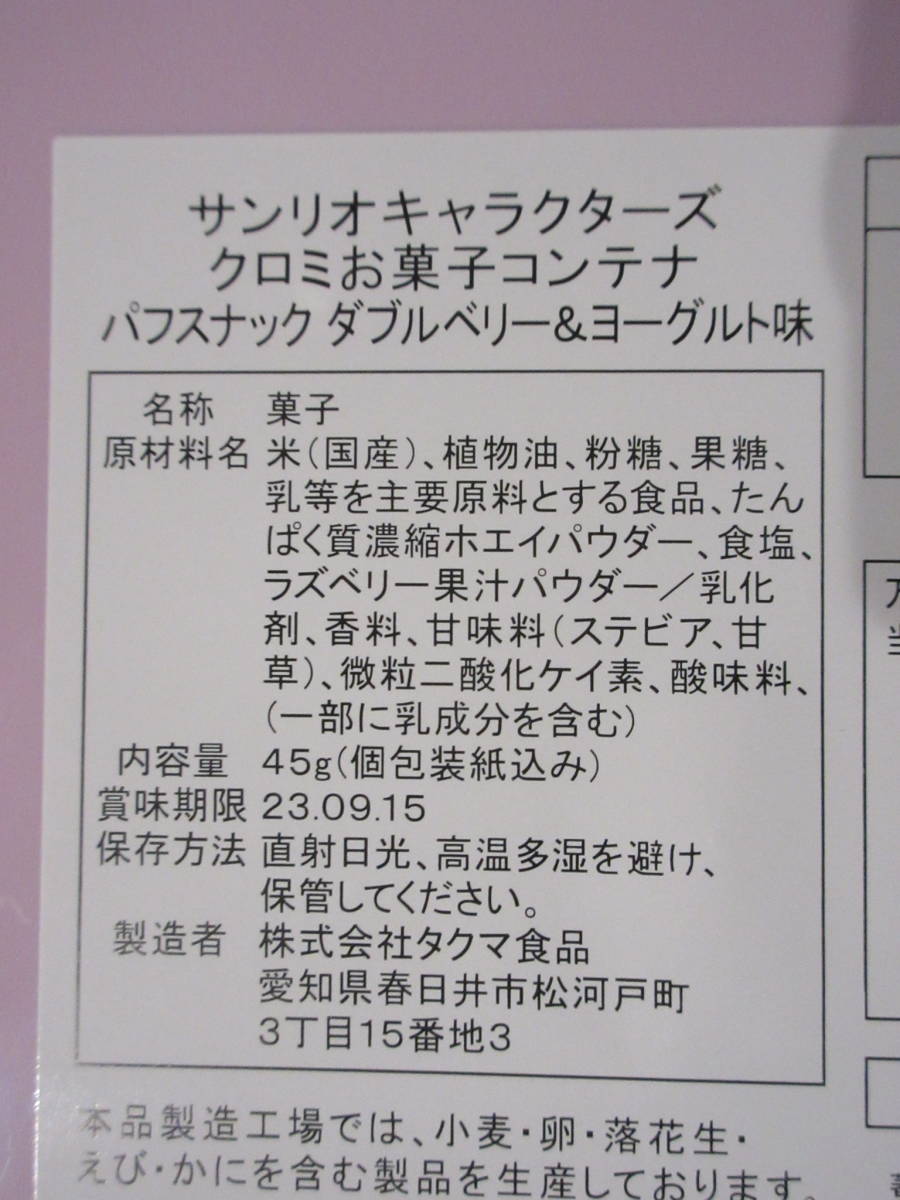 サンリオキャラクターズ
クロミお菓子コンテナ
パフスナック ダブルベリー&ヨーグルト味
名称 菓子
原材料名 米(国産)、植物油、粉糖、果糖、
乳等を主要原料とする食品、たん
ぱく質濃縮ホエイパウダー、食塩、
ラズベリー果汁パウダー/乳化
剤、香料、甘味料(ステビア、甘
草)、微粒二酸化ケイ素、酸味料、
(一部に乳成分を含む)
内容量 45g(個包装紙込み)
賞味期限 23.09.15
保存方法 直射日光、高温多湿を避け、
保管してください。
製造者 株式会社タクマ食品
愛知県春日井市松河戸町
3丁目15番地3
本品製造工場では、小麦・卵・落花生・
えび・かにを含む製品を生産しております。